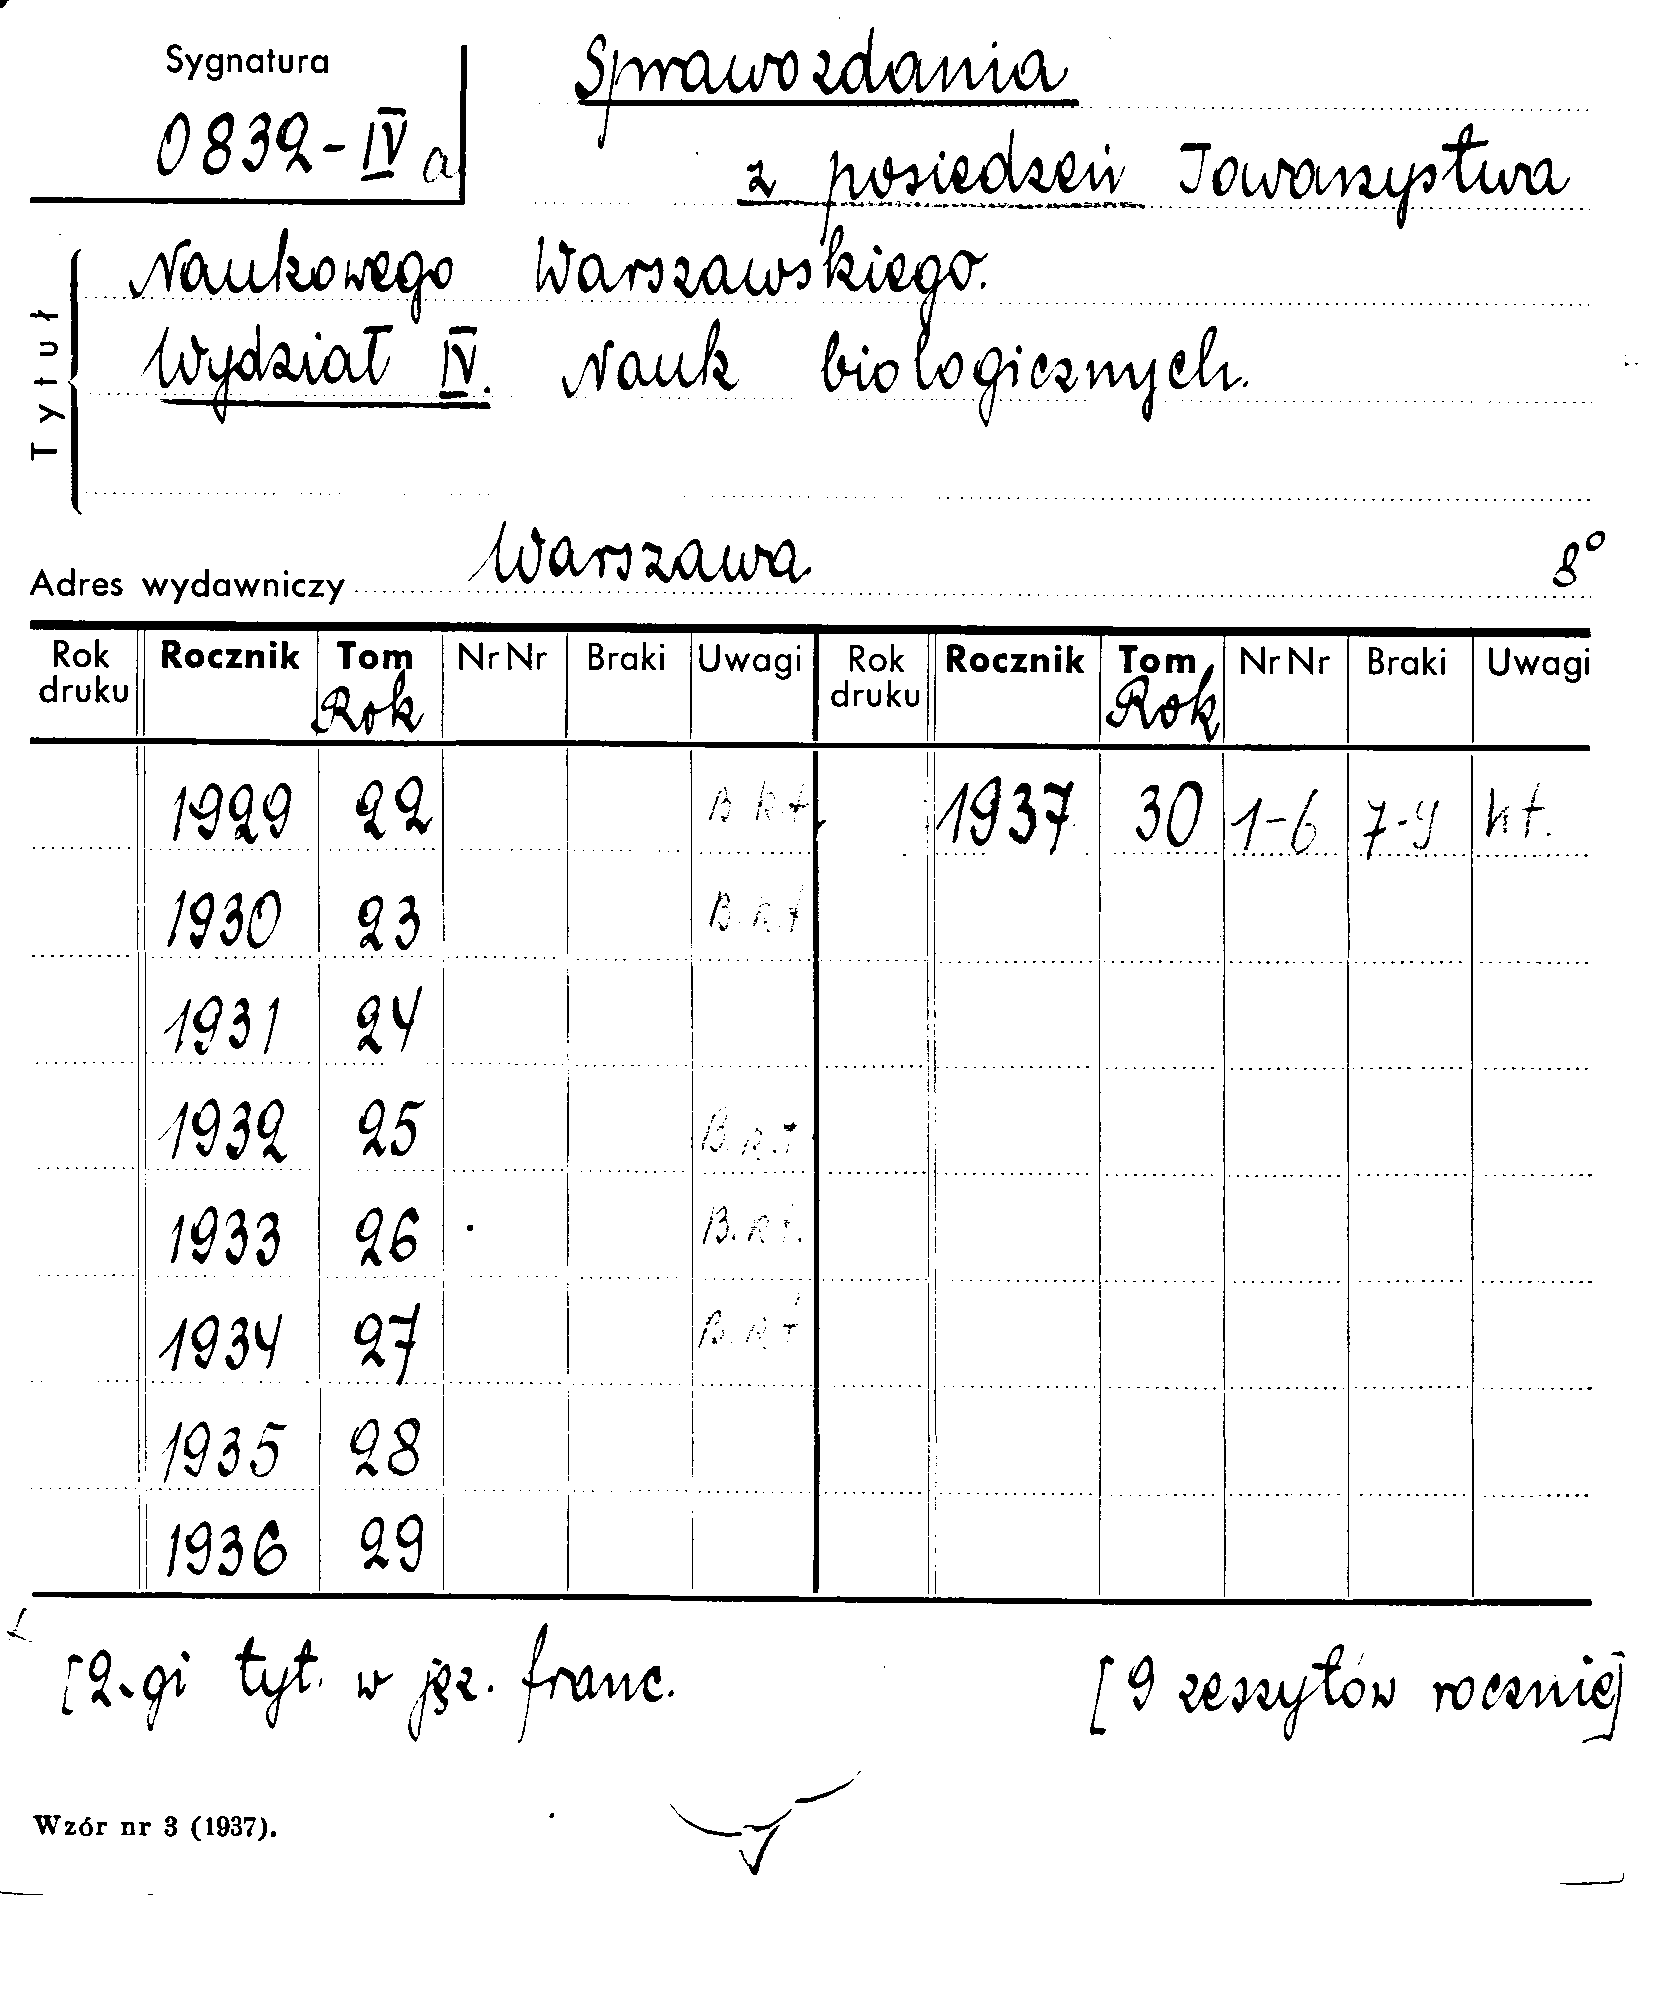 Sygnatura
0832-IV a
Sprawozdania
z posiedzeń Towarzystwa
Naukowego Warszawskiego.
Wydział IV. Nauk biologicznych.
Tytuł
Adres wydawniczy Warszawa 8°
Rok druku Rocznik Tom Rok Nr Nr Braki Uwagi Rok druku Rocznik Tom, Rok Nr Nr Braki Uwagi
1929 22 B kt 1937 30 1-6 7-9 kt.
1930 23 B.k.t
1931 24
1932 25 B k.t
1933 26 B. k t.
1934 27 B. k t
1935 28
1936 29
[2-gi tyt. w jęz. franc. [9 zeszytów rocznie]
Wzór nr 3 (1937).